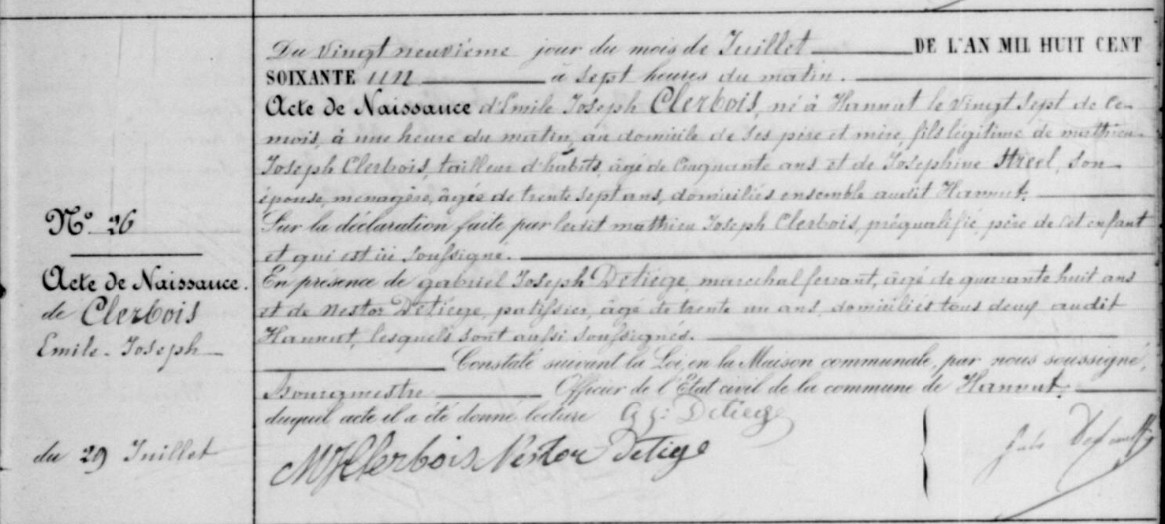 Du vingt neuvième jour du mois de Juillet DE L'AN MIL HUIT CENT
SOIXANTE un à sept heures du matin.
Acte de Naissance d'Emile Joseph Clerbois, né à Hannut le vingt sept de ce
mois, à une heure du matin, au domicile de ses père et mère, fils légitime de mathieu
Joseph Clerbois, tailleur d'habits, âgé de cinquante ans et de Joséphine Streel, son
épouse, menagère, âgée de trente sept ans, domiciliés ensemble audit Hannut.
Sur la déclaration faite par ledit mathieu Joseph Clerbois, préqualifié, père de cet enfant
et qui est ici soussigné.
En présence de gabriel Joseph Detiège, marechal ferrant, âgé de quarante huit ans
et de nestor Detiège, patissier, âgé de trente un ans, domiciliés tous deux audit
Hannut, lesquels sont aussi soussignés.
Constaté suivant la Loi, en la Maison communale, par nous soussigné,
Bourgmestre Officier de l'Etat civil de la commune de Hannut,
duquel acte il a été donné lecture G: J: Detiege
MJ Clerbois Nestor Detiege
Jules
N° 26
Acte de Naissance
de Clerbois
Emile-Joseph
du 29 Juillet